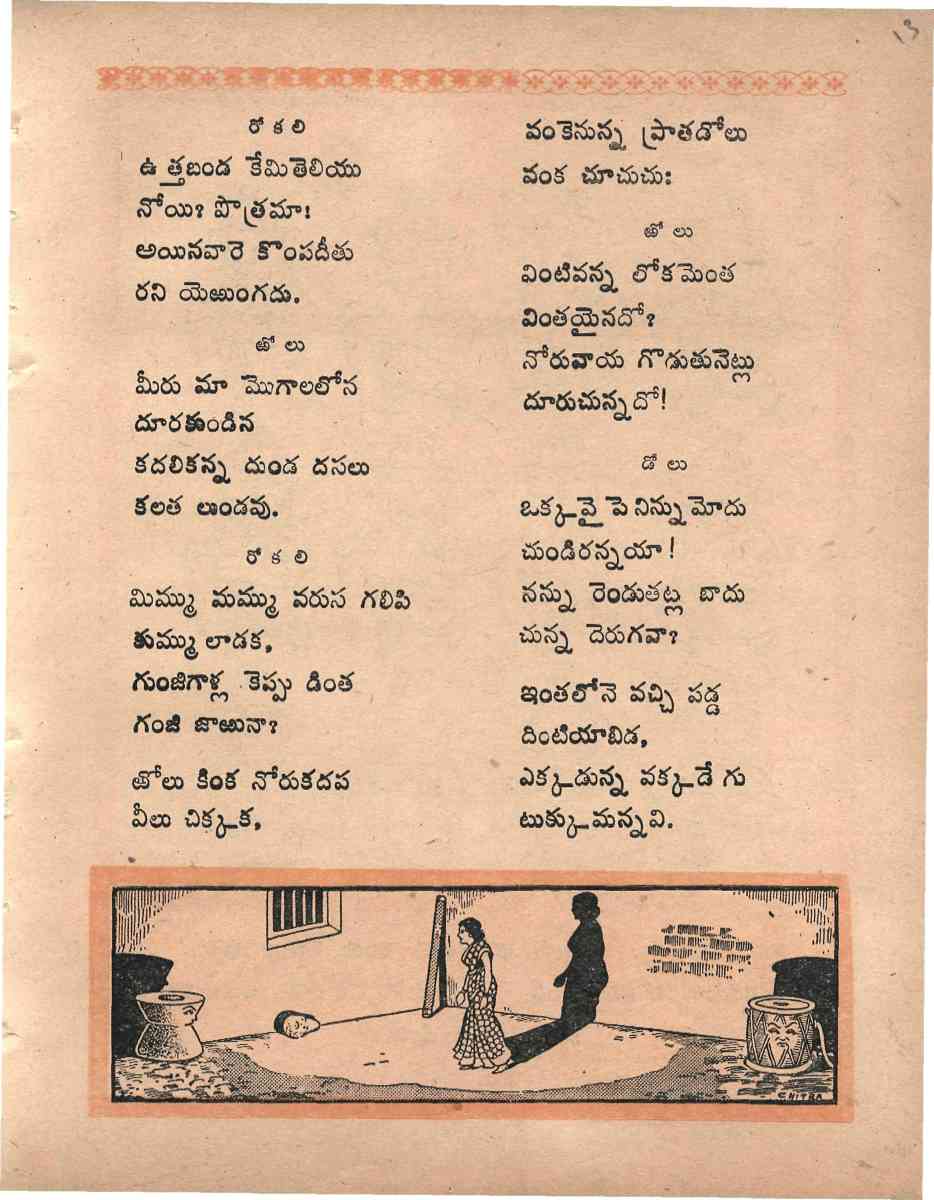 13
రోకలి
ఉత్తబండ కేమితెలియు
నోయి? పొత్రమా!
అయినవారె కొంపదీతు
రని యెఱుంగదు.
ఱోలు
మీరు మా మొగాలలోన
దూరకుండిన
కదలికన్న దుండ దసలు
కలత లుండవు.
రోకలి
మిమ్ము మమ్ము వరుస గలిపి
కుమ్ములాడక,
గుంజిగాళ్ల కెప్పు డింత
గంజి జాఱునా?
ఱోలు కింక నోరుకదప
వీలు చిక్కక,
వంకెనున్న ప్రాతడోలు
వంక చూచుచు:
ఱోలు
వింటివన్న లోకమెంత
వింతయైనదో?
నోరువాయ గొడుతునెట్లు
దూరుచున్నదో!
డోలు
ఒక్కవై పె నిన్ను మోదు
చుండిరన్నయా!
నన్ను రెండుతట్ల బాదు
చున్న దెరుగవా?
ఇంతలోనె వచ్చి పడ్డ
దింటియావిడ,
ఎక్కడున్న వక్కడే గు
టుక్కుమన్నవి.
CHITRA